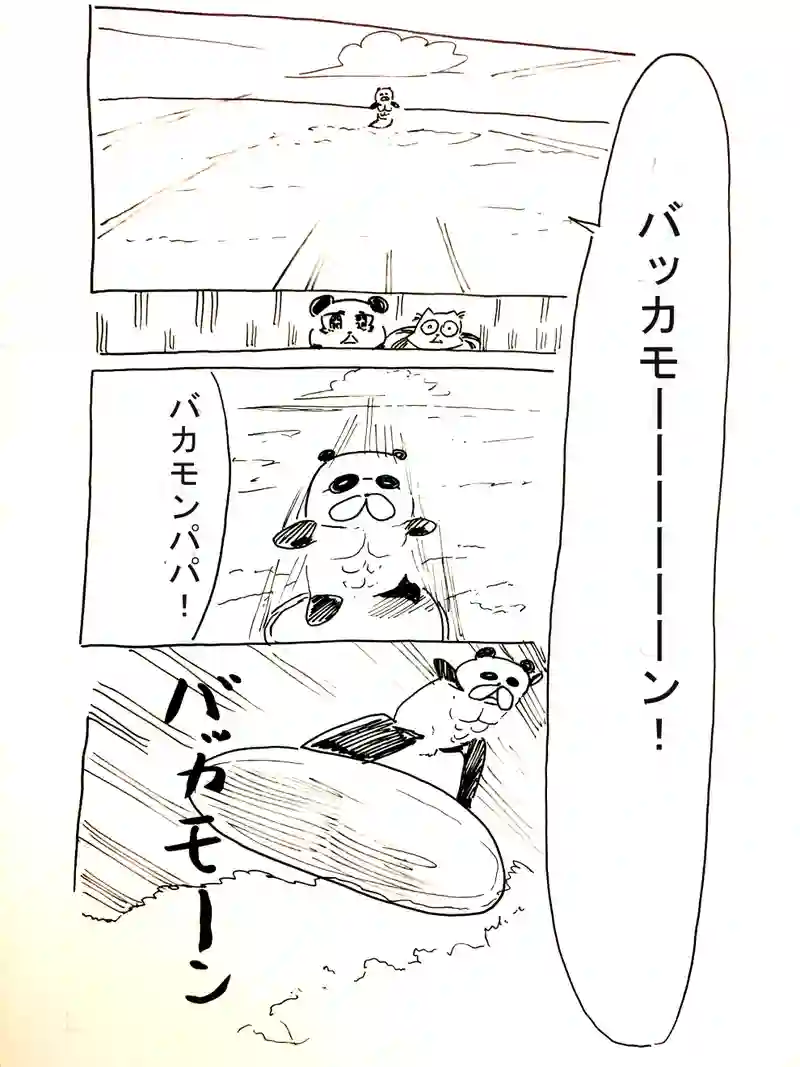 バッカモーーーーーーン！
バカモンパパ！
バッカモーン